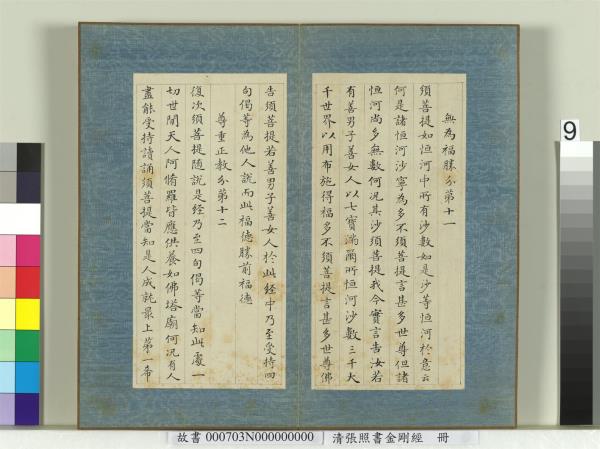 無為福勝分第十一
須菩提如恒河中所有沙數如是沙等恒河於意云
何是諸恒河沙寧為多不須菩提言甚多世尊但諸
恒河尚多無數何況其沙須菩提我今實言告汝若
有善男子善女人以七寶滿爾所恒河沙數三千大
千世界以用布施得福多不須菩提言甚多世尊佛
告須菩提若善男子善女人於此經中乃至受持四
句偈等為他人說而此福德勝前福德
尊重正教分第十二
復次須菩提隨說是經乃至四句偈等當知此處一
切世間天人阿脩羅皆應供養如佛塔廟何況有人
盡能受持讀誦須菩提當知是人成就最上第一希
9
故書 000703N000000000 清張照書金剛經 冊